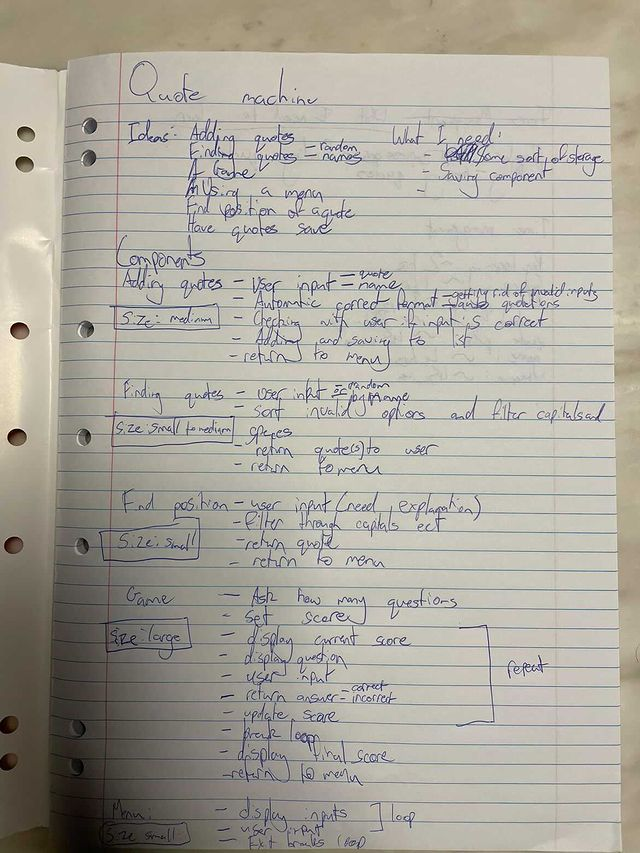 Quote machine
Ideas: Adding quotes
Finding quotes = random
names
A Game
Using a menu
Find position of a quote
Have quotes save
What I need:
- some sort of storage
- Saving component
-
Components
Adding quotes - User input = quote
name
- Automatic correct format = getting rid of invalid inputs
quotations
Size: medium
- Checking with user if input is correct
- Adding and saving to list
- return to menu
Finding quotes - user input = random
or by name
- sort invalid options and filter capitals and
Size: small to medium
spaces
- return quote(s) to user
- return to menu
Find position - user input (need explanation)
- filter through captals ect
Size: small
- return quote
- return to menu
Game - Ask how many questions
- Set score
Size: large
- display current score
- display question
- user input
- return answer = correct
incorrect
- update score
repeat
- break loop
- display final score
- return to menu
Menu: - display inputs
- user input
loop
Size small
- Exit breaks loop